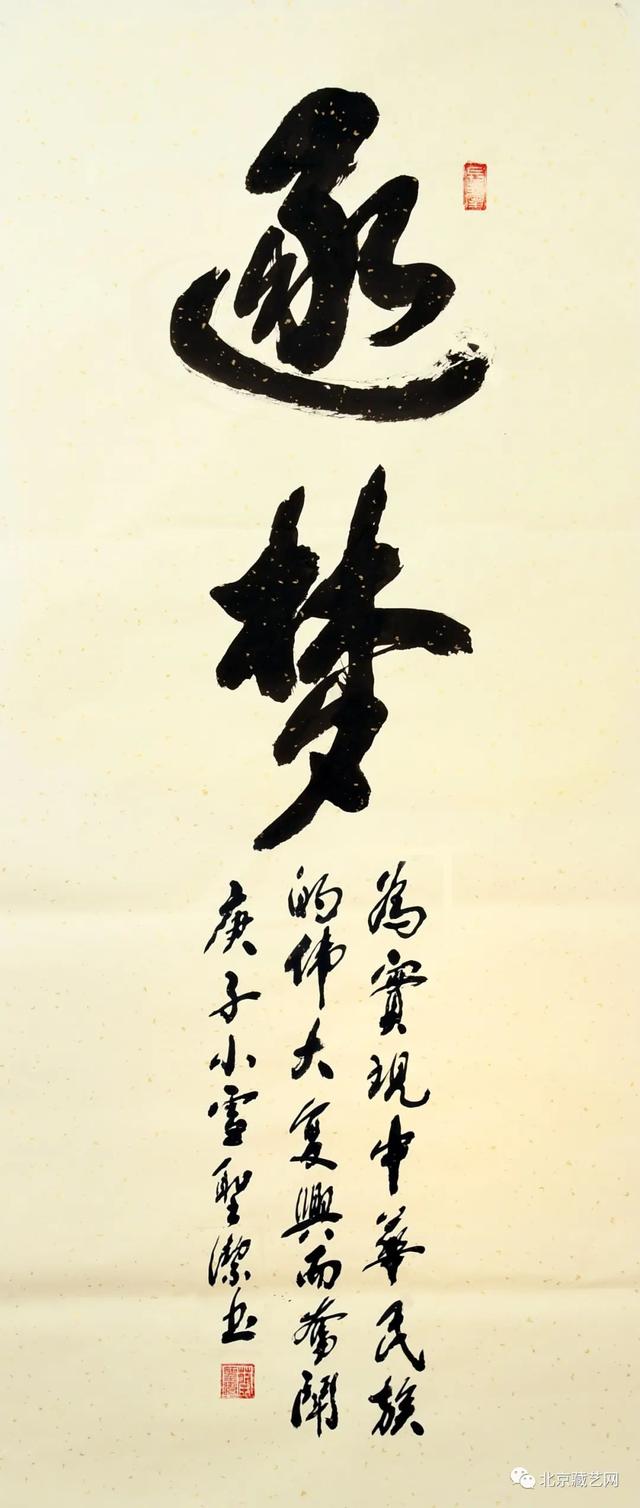 逐梦
為實現中華民族
的伟大复興而奮鬪
庚子小雪聖潔书
北京藏艺网